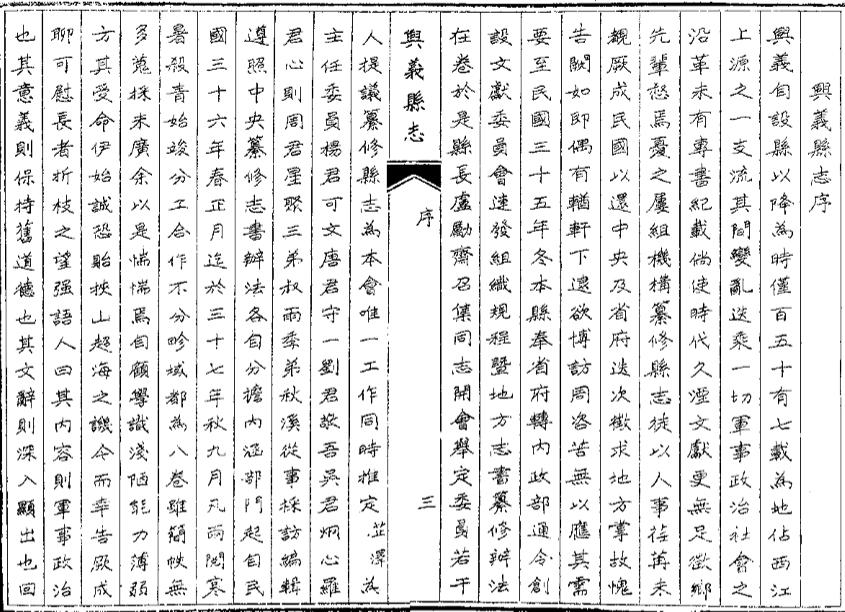 興義縣志序
興義自設縣以降為時僅百五十有七載為地佔西江
上源之一支流其間變亂迭乘一切軍事政治社會之
沿革未有專書紀載倘使時代久湮文獻更無足徵鄉
先輩怒焉憂之屢組機構纂修縣志徒以人事荏苒未
觀厥成民國以還中央及省府迭次徵求地方掌故愧
告闕如即偶有輶軒下逮欲博訪周咨苦無以應其需
要至民國三十五年冬本縣奉省府轉內政部通令創
設文獻委員會連發組織規程暨地方志書纂修辦法
在卷於是縣長盧勵齋召集同志開會舉定委員若干
興義縣志
序
三
人提議纂修縣志為本會唯一工作同時推定 芷澤為
主任委員楊君可文唐君守一劉君敬吾吳君炯心羅
君心則周君星聚三弟叔雨季弟秋溪從事採訪編輯
遵照中央纂修志書辦法各自分擔內涵部門起自民
國三十六年春正月迄於三十七年秋九月凡兩閱寒
暑殺青始竣分工合作不分畛域都為八卷雖簡帙無
多蒐採未廣余以是惴惴焉自顧學識淺陋能力薄弱
方其受命伊始誠恐貽挾山超海之譏今而幸告厥成
聊可慰長者折枝之望強語人曰其內容則軍事政治
也其意義則保持舊道德也其文辭則深入顯出也回